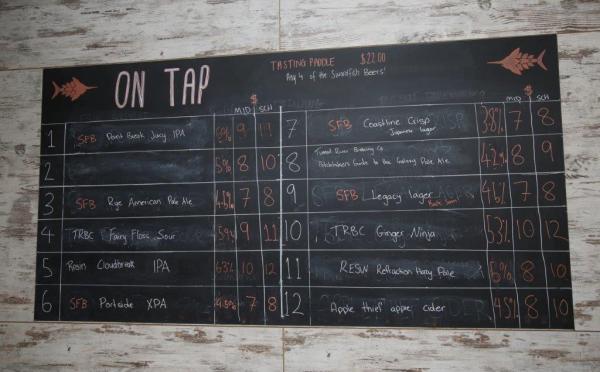 ON TAP
TASTING PADDLE $22.00
Any 4 of the Swordfish Beers!
$
MID SCH
1 SFB Point Break Juicy IPA 6% 9 11
2 5% 8 10
3 SFB Rye American Pale Ale 4.5% 7 8
4 TRBC Fairy Floss Sour 5% 9 11
5 Resin Cloudbreak IPA 6.3% 10 12
6 SFB Portside XPA 4.8% 7 8
$
MID SCH
7 SFB Coastline Crisp 3.8% 7 8
Japanese lager
8 Tumut River Brewing Co 4.2% 8 9
Hitchhikers Guide to the Galaxy Pale Ale
9 SFB Legacy lager 4.6% 7 8
Back Soon
10 TRBC Ginger Ninja 5.3% 10 12
11 RESIN Refraction Hazy Pale 5% 8 10
12 Apple thief apple cider 4.5% 8 10